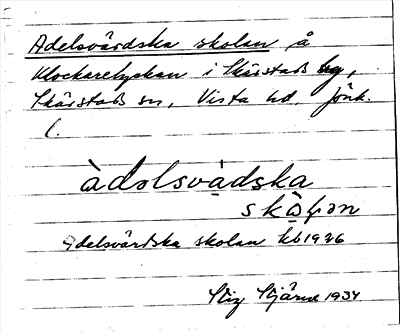 Adelsvärdska skolan å
Klockarelyckan i Skärstads by,
Skärstads sn, Vista hd. Jönk.
l.
àdolsvạ̀dska
skọ̀ɫan
Adelsvärdska skolan kb 1926
Stig Stjärne 1934